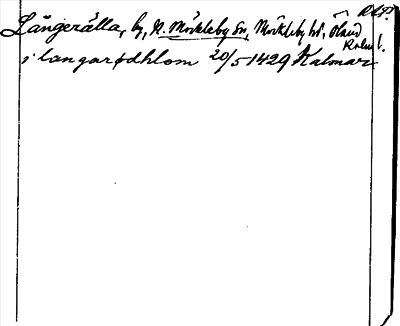 Långerälla, by, N. Möckleby sn, Möckleby hd, Öland
i langarødhlom 20/5 1429 Kalmar